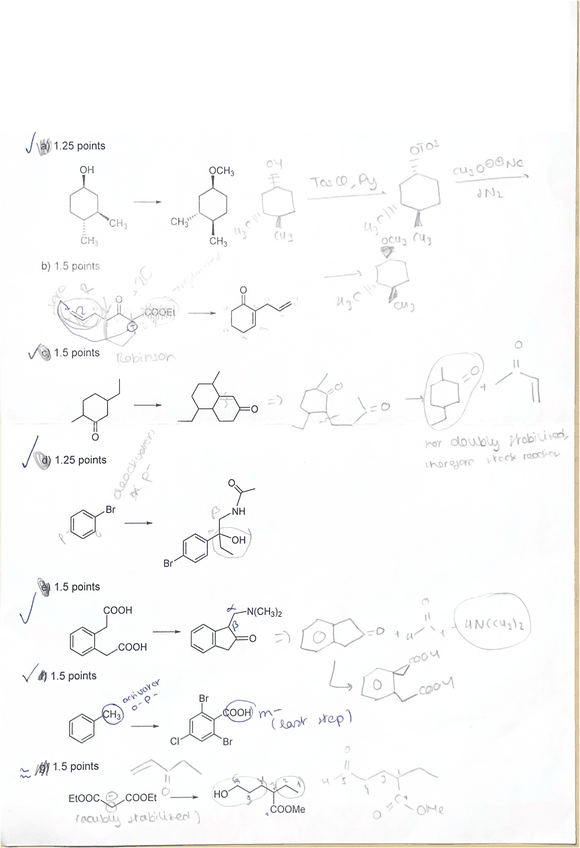 a) 1.25 points
OH
CH₃
CH₃
OCH₃
CH₃
CH₃
OH
H₃C
CH₃
TosCl, Py
OTOS
H₃C
CH₃
CH₃O⊖⊕Na
SN2
OCH₃
H₃C
CH₃
b) 1.5 points
O
COOEt
O
Robinson
c) 1.5 points
O
O
=)
O
O
O
+
O
not doubly stabilized,
therefore stork reaction
d) 1.25 points
deactivation
o- p-
Br
O
NH
β
OH
Br
e) 1.5 points
COOH
COOH
α
N(CH₃)₂
β
O
=)
O
+
H
H
+
HN(CH₃)₂
COOH
COOH
f) 1.5 points
activator
o- p-
CH₃
Br
COOH
m-
(last step)
Cl
Br
g) 1.5 points
O
EtOOC
COOEt
(doubly stabilized)
HO
COOMe
O
H
O
OMe